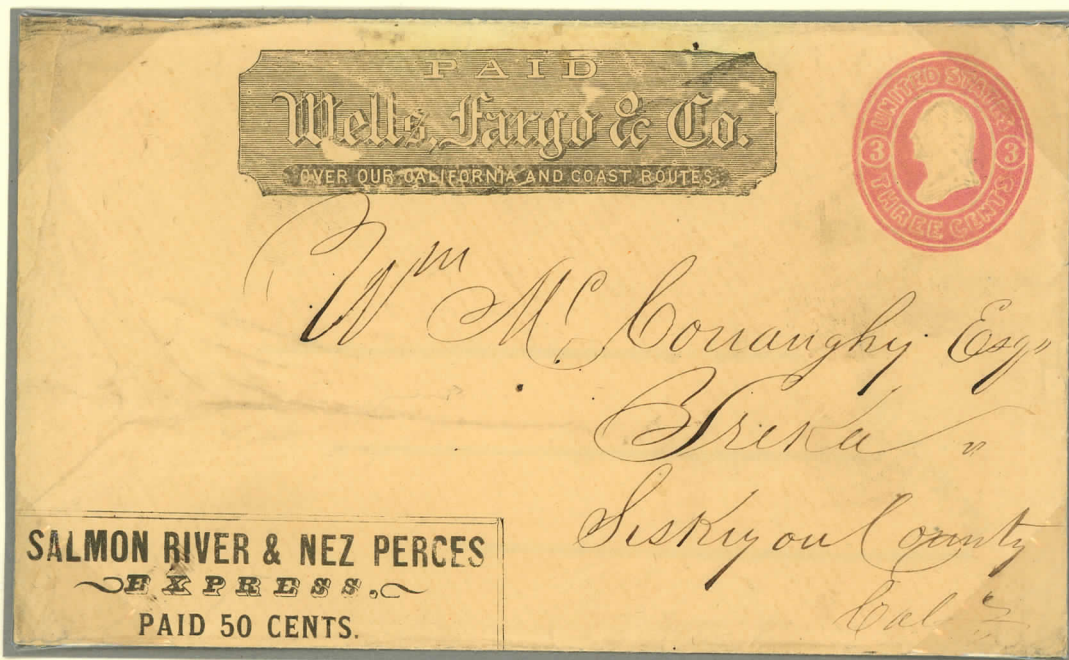 PAID
Wells, Fargo & Co.
OVER OUR CALIFORNIA AND COAST ROUTES.
UNITED STATES
3 3
THREE CENTS
Wm McConaughy Esq"
Yreka "
Siskiyou County
Cal
SALMON RIVER & NEZ PERCES
EXPRESS,
PAID 50 CENTS.